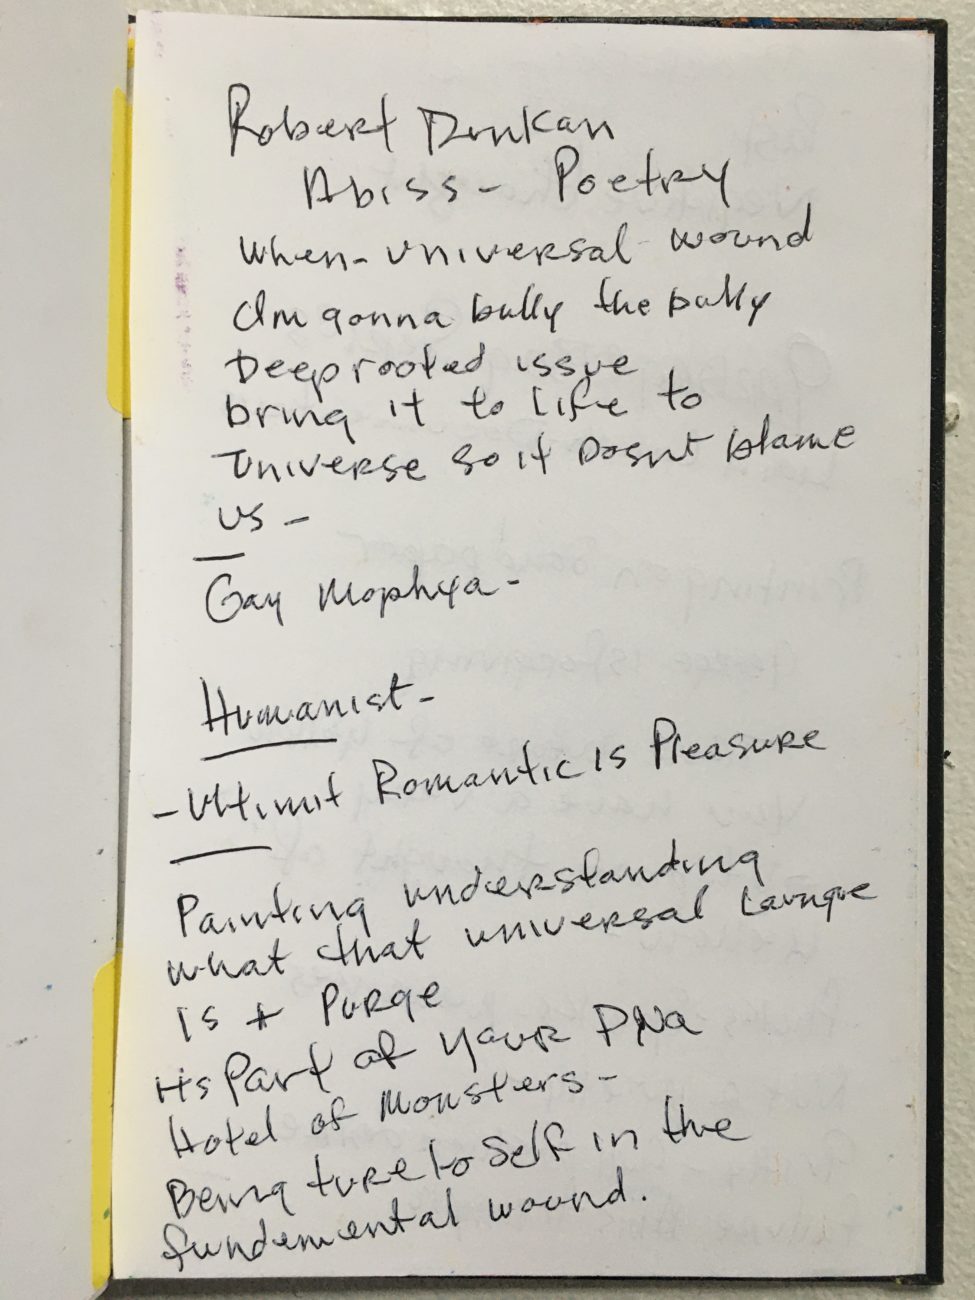 Robert Dunkan
Abiss - Poetry
when - universal wound
Im gonna bully the bully
Deep rooted issue
bring it to life to
Universe so it Dosnt blame
us -
Gay Mophya -
Humanist -
- Ultimit Romantic is Pleasure
Painting understanding
what that universal Launge
is + Purge
its Part of your DNa
Hotel of Monsters -
Being ture to Self in the
fundemental wound.